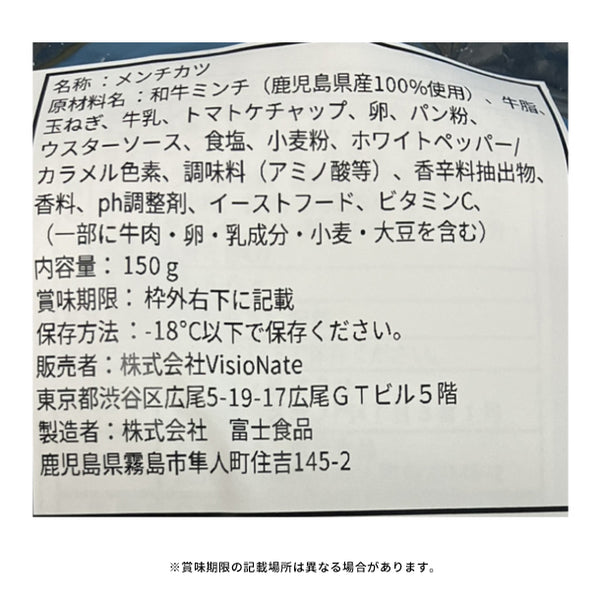 名称：メンチカツ
原材料名：和牛ミンチ（鹿児島県産100%使用）、牛脂、
玉ねぎ、牛乳、トマトケチャップ、卵、パン粉、
ウスターソース、食塩、小麦粉、ホワイトペッパー/
カラメル色素、調味料（アミノ酸等）、香辛料抽出物、
香料、ph調整剤、イーストフード、ビタミンC、
（一部に牛肉・卵・乳成分・小麦・大豆を含む）
内容量：150ｇ
賞味期限：枠外右下に記載
保存方法：-18℃以下で保存ください。
販売者：株式会社VisioNate
東京都渋谷区広尾5-19-17広尾ＧＴビル５階
製造者：株式会社　富士食品
鹿児島県霧島市隼人町住吉145-2
※賞味期限の記載場所は異なる場合があります。